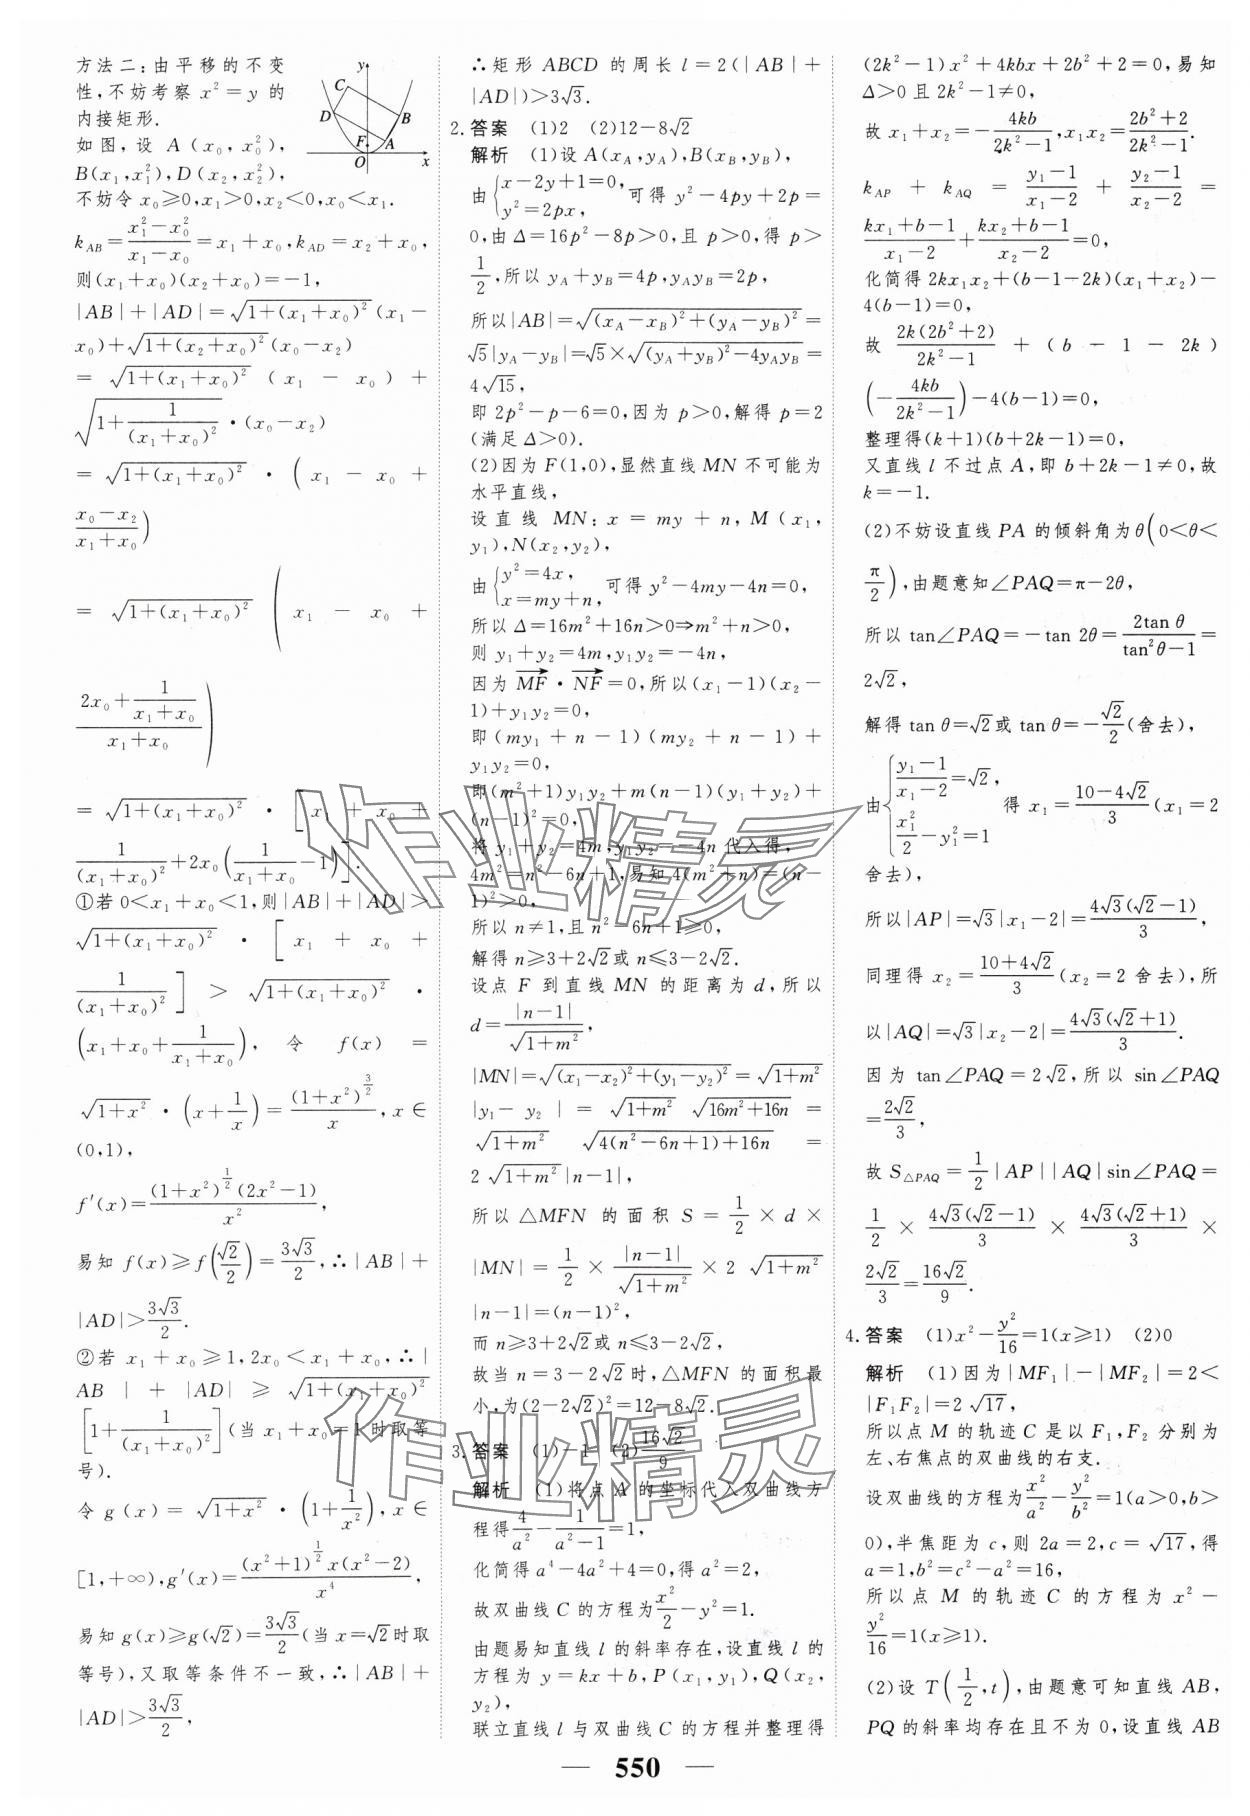 方法二:由平移的不变
性,不妨考察 x²=y 的
内接矩形.
如图,设 A(x₀,x₀²),
B(x₁,x₁²),D(x₂,x₂²),
不妨令 x₀≥0,x₁>0,x₂<0,x₀<x₁.
k_AB=(x₁²-x₀²)/(x₁-x₀)=x₁+x₀,k_AD=x₂+x₀,
则(x₁+x₀)(x₂+x₀)=-1,
|AB|+|AD|=√(1+(x₁+x₀)²)(x₁-
x₀)+√(1+(x₂+x₀)²)(x₀-x₂)
=√(1+(x₁+x₀)²)(x₁-x₀)+
√(1+1/(x₁+x₀)²)·(x₀-x₂)
=√(1+(x₁+x₀)²)·(x₁-x₀+
(x₀-x₂)/(x₁+x₀))
=√(1+(x₁+x₀)²)(x₁-x₀+
(2x₀+1/(x₁+x₀))/(x₁+x₀))
=√(1+(x₁+x₀)²)·[x₁+x₀+
1/(x₁+x₀)²+2x₀(1/(x₁+x₀)-1)].
①若 0<x₁+x₀<1,则|AB|+|AD|>
√(1+(x₁+x₀)²)·[x₁+x₀+
1/(x₁+x₀)²]>√(1+(x₁+x₀)²)·
(x₁+x₀+1/(x₁+x₀)),令 f(x)=
√(1+x²)·(x+1/x)=(1+x²)^(3/2)/x,x∈
(0,1),
f′(x)=(1+x²)^(1/2)(2x²-1)/x²,
易知 f(x)≥f(√2/2)=3√3/2,∴|AB|+
|AD|>3√3/2.
②若 x₁+x₀≥1,2x₀<x₁+x₀,∴|
AB|+|AD|≥√(1+(x₁+x₀)²)
[1+1/(x₁+x₀)²](当 x₁+x₀=1时取等
号).
令 g(x)=√(1+x²)·(1+1/x²),x∈
[1,+∞),g′(x)=(x²+1)^(1/2)x(x²-2)/x⁴,
易知g(x)≥g(√2)=3√3/2(当x=√2时取
等号),又取等条件不一致,∴|AB|+
|AD|>3√3/2,
y
C
D
B
F
A
O
x
∴矩形 ABCD 的周长 l=2(|AB|+
|AD|)>3√3.
2.答案 (1)2 (2)12-8√2
解析 (1)设A(x_A,y_A),B(x_B,y_B),
由{x-2y+1=0, y²=2px, 可得 y²-4py+2p=
0,由Δ=16p²-8p>0,且 p>0,得 p>
1/2,所以 y_A+y_B=4p,y_Ay_B=2p,
所以|AB|=√((x_A-x_B)²+(y_A-y_B)²)=
√5|y_A-y_B|=√5×√((y_A+y_B)²-4y_Ay_B)=
4√15,
即 2p²-p-6=0,因为 p>0,解得 p=2
(满足Δ>0).
(2)因为 F(1,0),显然直线 MN 不可能为
水平直线,
设直线 MN:x=my+n,M(x₁,
y₁),N(x₂,y₂),
由{y²=4x, x=my+n, 可得 y²-4my-4n=0,
所以 Δ=16m²+16n>0⇒m²+n>0,
则 y₁+y₂=4m,y₁y₂=-4n,
因为 MF·NF=0,所以(x₁-1)(x₂-
1)+y₁y₂=0,
即(my₁+n-1)(my₂+n-1)+
y₁y₂=0,
即(m²+1)y₁y₂+m(n-1)(y₁+y₂)+
(n-1)²=0,
将 y₁+y₂=4m,y₁y₂=-4n 代入得,
4m²=n²-6n+1,易知 4(m²+n)=(n-
1)²>0,
所以 n≠1,且 n²-6n+1≥0,
解得 n≥3+2√2或 n≤3-2√2.
设点 F 到直线 MN 的距离为 d,所以
d=|n-1|/√(1+m²),
|MN|=√((x₁-x₂)²+(y₁-y₂)²)=√(1+m²)
|y₁-y₂|=√(1+m²)√(16m²+16n)=
√(1+m²)√(4(n²-6n+1)+16n)=
2√(1+m²)|n-1|,
所以△MFN 的面积 S=1/2×d×
|MN|=1/2×|n-1|/√(1+m²)×2√(1+m²)
|n-1|=(n-1)²,
而 n≥3+2√2或 n≤3-2√2,
故当 n=3-2√2时,△MFN 的面积最
小,为(2-2√2)²=12-8√2.
3.答案 (1)-1 (2)16√2/9
解析 (1)将点 A 的坐标代入双曲线方
程得4/a²-1/(a²-1)=1,
化简得 a⁴-4a²+4=0,得 a²=2,
故双曲线 C 的方程为x²/2-y²=1.
由题易知直线 l 的斜率存在,设直线 l 的
方程为 y=kx+b,P(x₁,y₁),Q(x₂,
y₂),
联立直线 l 与双曲线C 的方程并整理得
(2k²-1)x²+4kbx+2b²+2=0,易知
Δ>0且 2k²-1≠0,
故 x₁+x₂=-4kb/(2k²-1),x₁x₂=(2b²+2)/(2k²-1).
k_AP+k_AQ=(y₁-1)/(x₁-2)+(y₂-1)/(x₂-2)=
(kx₁+b-1)/(x₁-2)+(kx₂+b-1)/(x₂-2)=0,
化简得 2kx₁x₂+(b-1-2k)(x₁+x₂)-
4(b-1)=0,
故 2k(2b²+2)/(2k²-1)+(b-1-2k)
(-4kb/(2k²-1))-4(b-1)=0,
整理得(k+1)(b+2k-1)=0,
又直线 l 不过点 A,即 b+2k-1≠0,故
k=-1.
(2)不妨设直线 PA 的倾斜角为θ(0<θ<
π/2),由题意知∠PAQ=π-2θ,
所以 tan∠PAQ=-tan 2θ=2tan θ/(tan²θ-1)=
2√2,
解得 tan θ=√2或 tan θ=-√2/2(舍去),
由{(y₁-1)/(x₁-2)=√2, x₁²/2-y₁²=1 得 x₁=(10-4√2)/3(x₁=2
舍去),
所以|AP|=√3|x₁-2|=4√3(√2-1)/3,
同理得 x₂=(10+4√2)/3(x₂=2 舍去),所
以|AQ|=√3|x₂-2|=4√3(√2+1)/3.
因为 tan∠PAQ=2√2,所以 sin∠PAQ
=2√2/3,
故 S△PAQ=1/2|AP||AQ|sin∠PAQ=
1/2×4√3(√2-1)/3×4√3(√2+1)/3×
2√2/3=16√2/9.
4.答案 (1)x²-y²/16=1(x≥1) (2)0
解析 (1)因为|MF₁|-|MF₂|=2<
|F₁F₂|=2√17,
所以点 M 的轨迹 C 是以 F₁,F₂ 分别为
左、右焦点的双曲线的右支.
设双曲线的方程为x²/a²-y²/b²=1(a>0,b>
0),半焦距为 c,则 2a=2,c=√17,得
a=1,b²=c²-a²=16,
所以点 M 的轨迹 C 的方程为 x²-
y²/16=1(x≥1).
(2)设 T(1/2,t),由题意可知直线 AB,
PQ 的斜率均存在且不为 0,设直线 AB
作业精灵
作业精灵
— 550 —